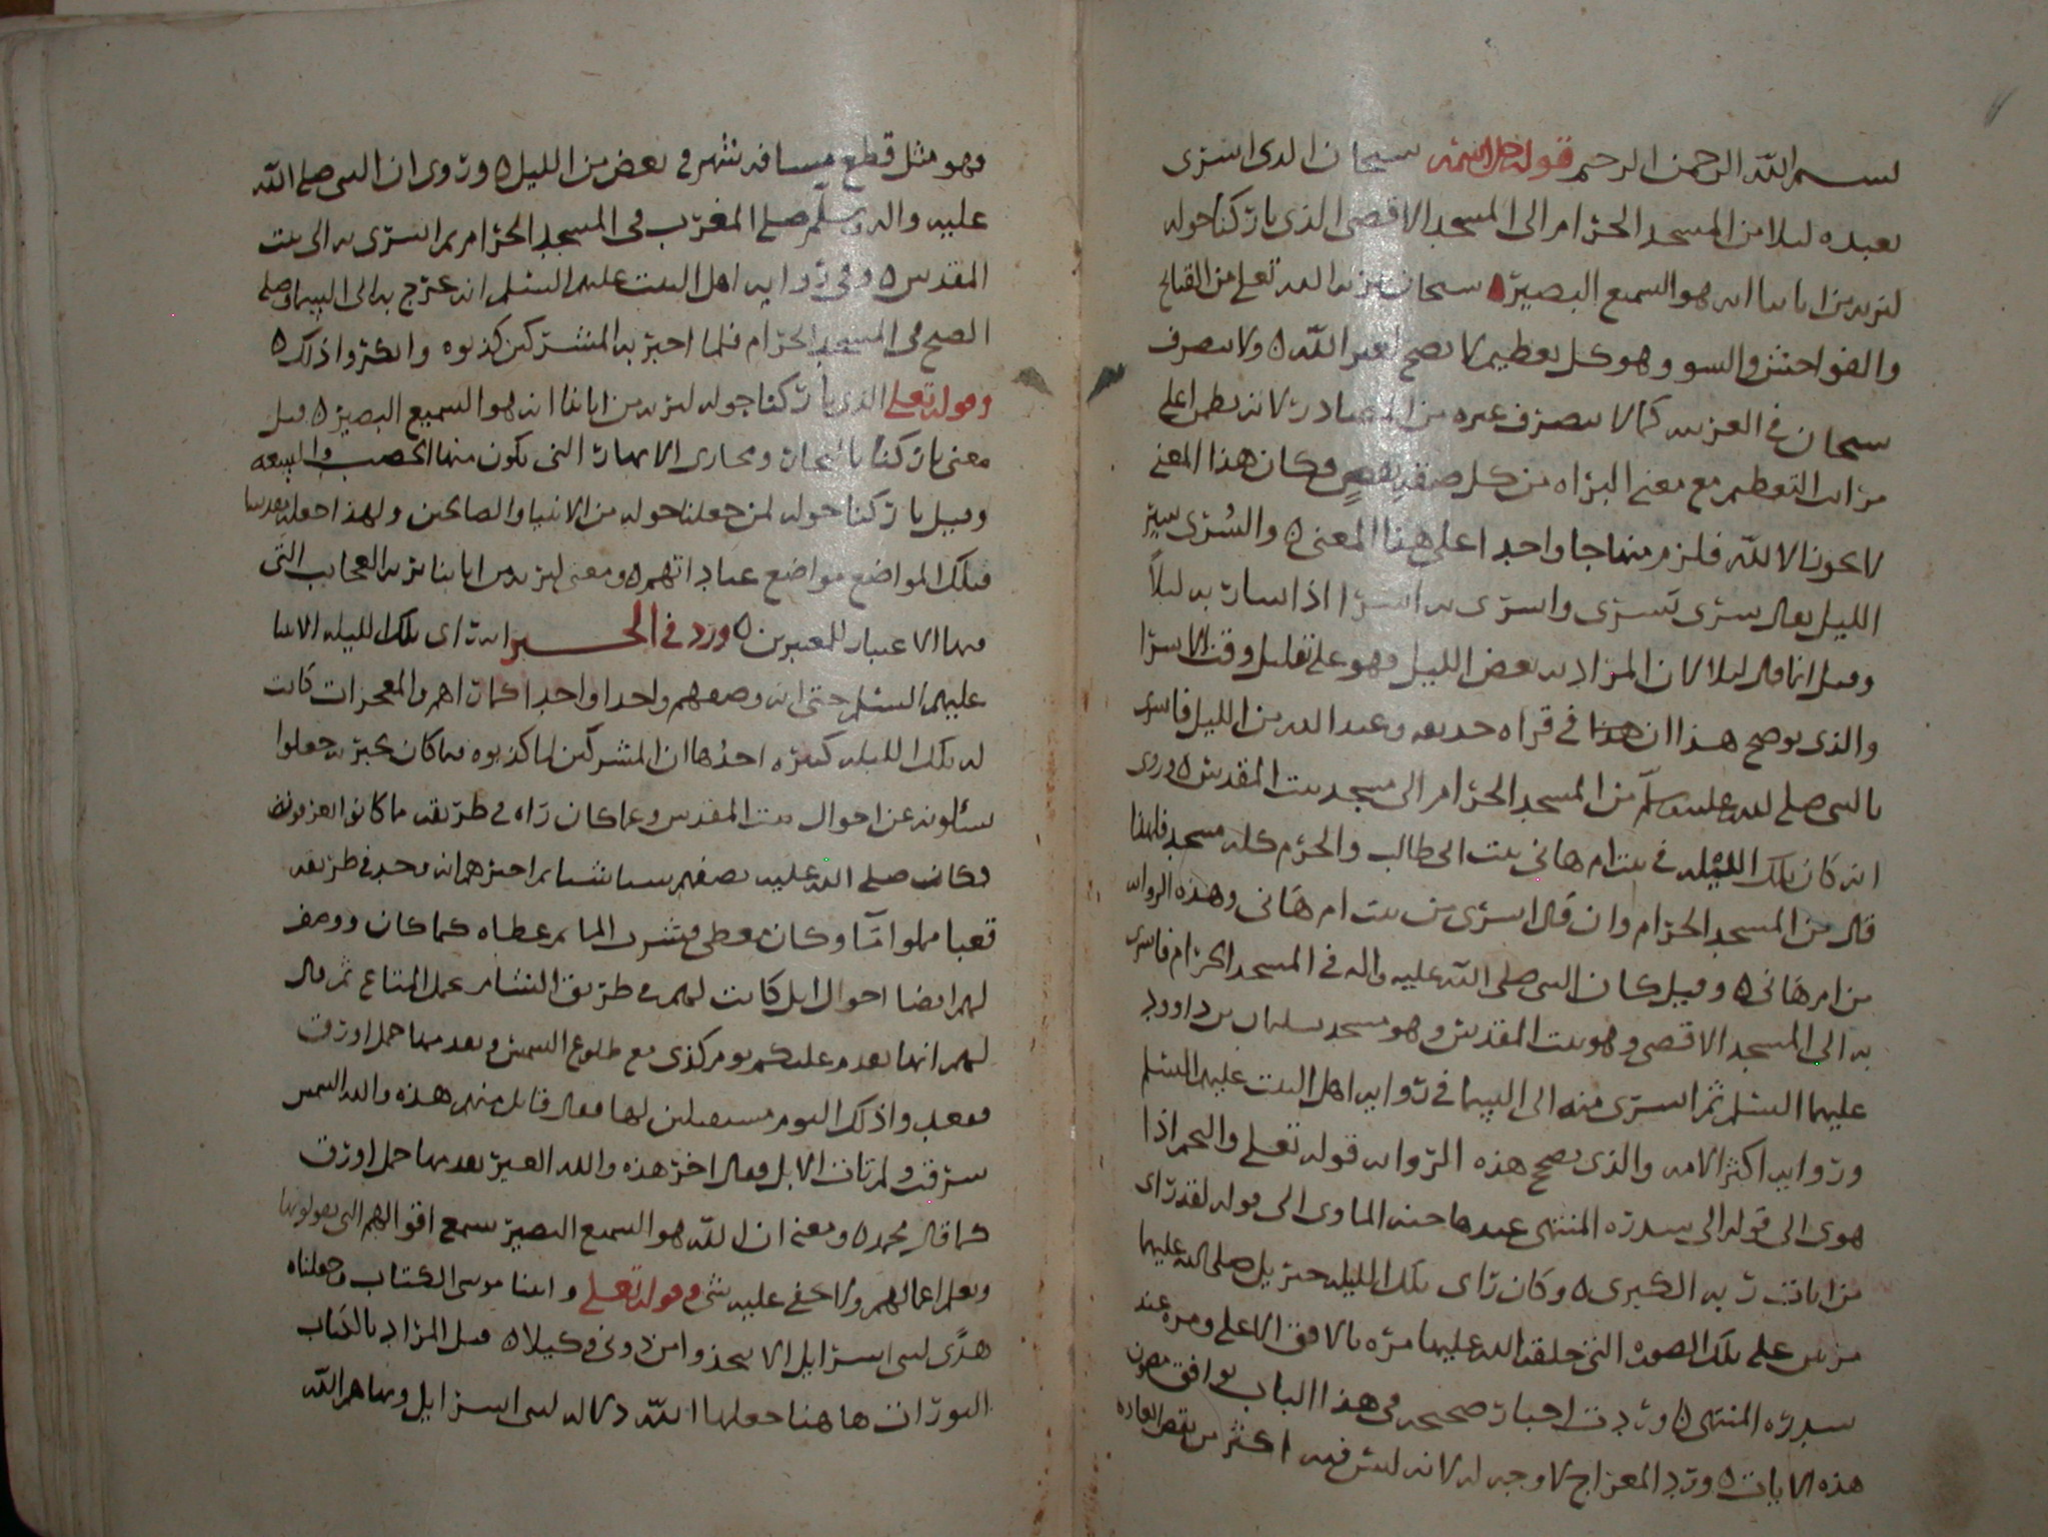 بسم الله الرحمن الرحيم قوله جل اسمه سبحان الذي اسرى
بعبده ليلا من المسجد الحرام الى المسجد الاقصى الذي باركنا حوله
لنريه من اياتنا انه هو السميع البصير ه سبحان تنزيه الله تعلى من القبائح
والفواحش والسوو وهو كل تعظيم لا يصح لغير الله ه ولا يتصرف
سبحان في العربيه كما لا يتصرف غيره من المصادر لانه يطهر اعلى
مراتب التعظيم مع معنى البراه من كل صفه نقص وكان هذا المعنى
لا يكون الا لله فلزم منهاجا واحدا على هذا المعنى ه والسرى سير
الليل يقال سرى يسرى واسرى به اسرا اذا سار به ليلاً
وقيل انما قال ليلا لان المراد به بعض الليل فهو على تقليل وقت الاسرا
والذي يوضح هذا ان في قراه حذيفه وعبد الله من الليل فاسرى
بالنبي صلى الله عليه وسلم من المسجد الحرام الى مسجد بيت المقدس ه وروى
انه كان تلك الليله في بيت ام هاني بنت ابي طالب والحرم كله مسجد فلهذا
قال من المسجد الحرام وان قال اسرى من بيت ام هانى وهذه الروايه
من ام هانى ه وقيل كان النبي صلى الله عليه واله في المسجد الحرام فاسرى
به الى المسجد الاقصى وهو بيت المقدس وهو مسجد سليمان بن داوود
عليهما السلم ثم اسرى منه الى السما في روايه اهل البيت عليهم السلم
وروايه اكثر الامه والذي يصحح هذه الروايه قوله تعلى والنجم اذا
هوى الى قوله الى سدره المنتهى عندها جنه الماوى الى قوله لقد راى
من ايات ربه الكبرى ه وكان راى تلك الليله جبريل صلى الله عليهما
مرتين على تلك الصوره التي خلقه الله عليها مره بالافق الاعلى ومره عند
سدره المنتهى ه وردت اخبار صحيحه في هذا الباب يوافق مضمون
هذه الايات ه ورد المعراج لا وجه له لانه ليس فيه اكثر من نقض العاده
فهو مثل قطع مسافه شهر في بعض من الليل ه وروى ان النبي صلى الله
عليه واله وسلم صلى المغرب في المسجد الحرام ثم اسرى به الى بيت
المقدس ه وفي روايه اهل البيت عليهم السلم انه عرج به الى السما وصلى
الصبح في المسجد الحرام فلما اخبر به المشركين كذبوه وانكروا ذلك ه
وقوله تعلى الذي باركنا حوله لنريه من اياتنا انه هو السميع البصير ه قيل
معنى باركنا بالثمار ومجارى الانهار التي يكون منها الخصب والسعه
وقيل باركنا حوله لمن جعلنا حوله من الانبيا والصالحين ولهذا جعله مقدسا
فتلك المواضع مواضع عباداتهم ه ومعنى لنريه من اياتنا نريه العجايب التي
فيها الاعتبار للمعتبرين ه ورد في الخبر انه راى تلك الليله الانبيا
عليهم السلم حتى انه وصفهم واحدا واحدا كمان اهم والمعجزات كانت
له تلك الليله كثيره احدها ان المشركين لما كذبوه فيما كان يخبر به جعلوا
يسئلونه عن احوال بيت المقدس وعما كان راه في طريقه ما كانوا يعرفونه
وكان صلى الله عليه يصفهم شيا شيا ثم اخبرهم انه وجد في طريقه
قعبا مملوا مآ وكان مغطى فشرب الما ثم غطاه كما كان ووصف
لهم ايضا احوال ابل كانت لهم في طريق الشام تحمل المتاع ثم قال
لهم انها تقدم عليكم يوم كذى مع طلوع الشمس وتقدمها جمل اورق
فقعدوا ذلك اليوم مستقبلين لها فقال قايل منهم هذه والله الشمس
شرقت ولم تات الابل وقال اخر هذه والله العير تقدمها جمل اورق
كما قال محمد ه ومعنى ان الله هو السميع البصير يسمع اقوالهم التي يقولونها
ويعلم اعمالهم ولا يخفى عليه شي وقوله تعلى واتينا موسى الكتاب وجعلناه
هدًى لبني اسرايل الا تتخذوا من دوني وكيلا ه قيل المراد بالكتاب
التورات هاهنا جعلها الله دلاله لبني اسرايل وبها هم الله